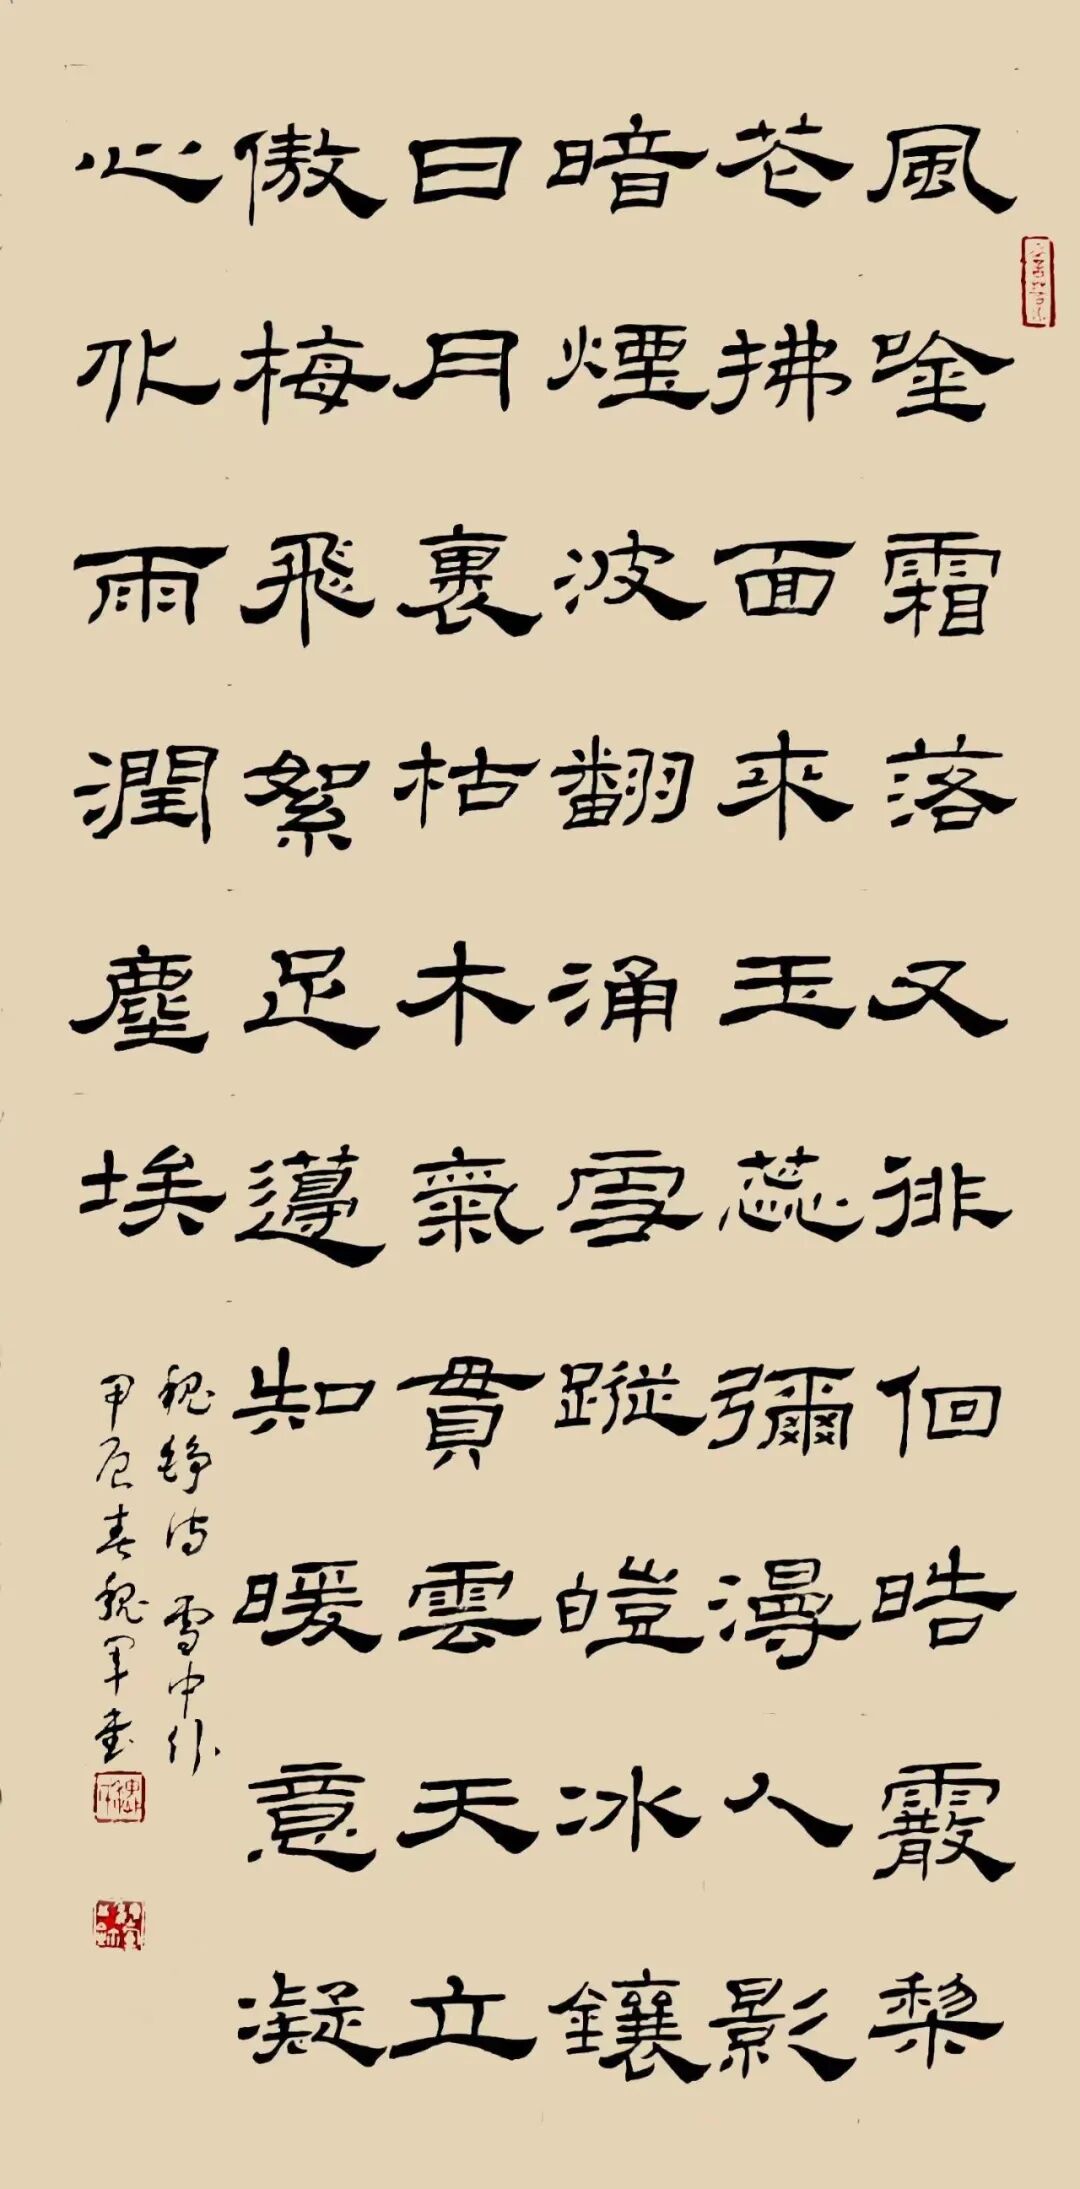 風唫霜落又徘佪晧霰梨
花拂面來玉蕊彌漫人影
暗煙波翻涌雪蹤皚冰鑲
日月裹枯木氣貫雲天立
傲梅飛絮足邁知暖意凝
心化雨潤塵埃
魏錚詩 雪中作
甲辰春魏軍書